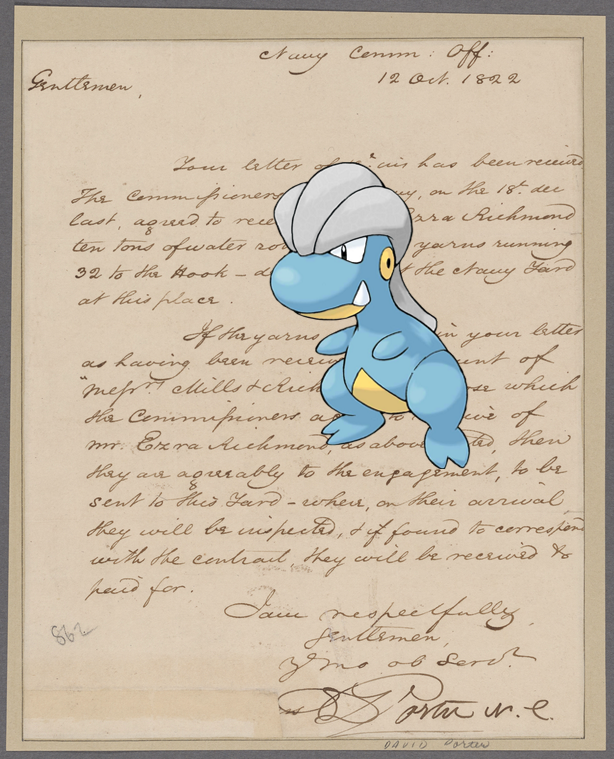 Navy Comm: Off:
12 Oct. 1822
Gentlemen,
Your letter of has been received
The Commissioners on the 18th. dec
last, agreed to Ezra Richmond
ten tons of water yarns running
32 to the Hook – the Navy Yard
at this place.
If the yarns in your letter
as having been of
"Messrs. Mills & which
the Commissioners of
mr. Ezra Richmond, as above then
they are agreeably to the engagement, to be
sent to this Yard – where, on their arrival,
they will be inspected, & if found to correspond
with the contract they will be received &
paid for.
I am respectfully,
Gentlemen,
yr mo ob Servt.
D Porter N. C.
862
DAVID Porter